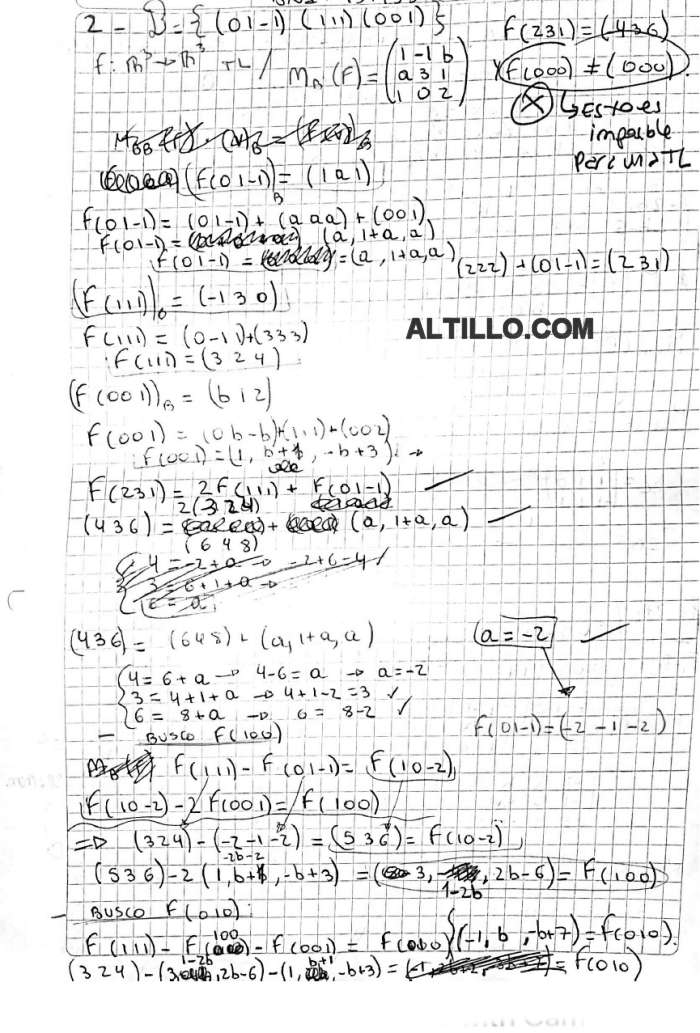 2 - B = { (01-1) (111) (001) }
f: ℝ³→ℝ³ TL / M_B (F) = (1 -1 b
a 3 1
1 0 2)
F(231) = (436)
y F(000) ≠ (000)
X ↳ Esto es
imposible
para una TL
(F(01-1))_B = (1a1)
F(01-1) = (01-1) + (aaa) + (001)
F(01-1) = (a, 1+a, a)
F(01-1) = (a, 1+a, a)
(222) + (01-1) = (231)
(F(111))_B = (-130)
F(111) = (0-11)+(333)
F(111) = (324)
ALTILLO.COM
(F(001))_B = (b12)
F(001) = (0b-b)+(111)+(002)
F(001) = (1, b+1, -b+3)
F(231) = 2F(111) + F(01-1)
2(324)
(436) = + (a, 1+a, a)
(648)
4 = -2+a → -2+6=4
3 = 6+1+a →
6 = a
(436) = (648) + (a, 1+a, a)
a = -2
4 = 6+a → 4-6 = a → a = -2
3 = 4+1+a → 4+1-2 = 3 ✓
6 = 8+a → 6 = 8-2 ✓
F(01-1) = (-2 -1 -2)
- BUSCO F(100)
F(111) - F(01-1) = F(10-2)
F(10-2) - 2F(001) = F(100)
⇒ (324) - (-2-1-2) = (536) = F(10-2)
-2b-2
(536) - 2 (1, b+1, -b+3) = (3, , 2b-6) = F(100)
1-2b
- BUSCO F(010):
F(111) - F(100) - F(001) = F(010) (-1, b, -b+7) = f(010).
(324) - (3, 1-2b, 2b-6) - (1, b+1, -b+3) = = F(010)